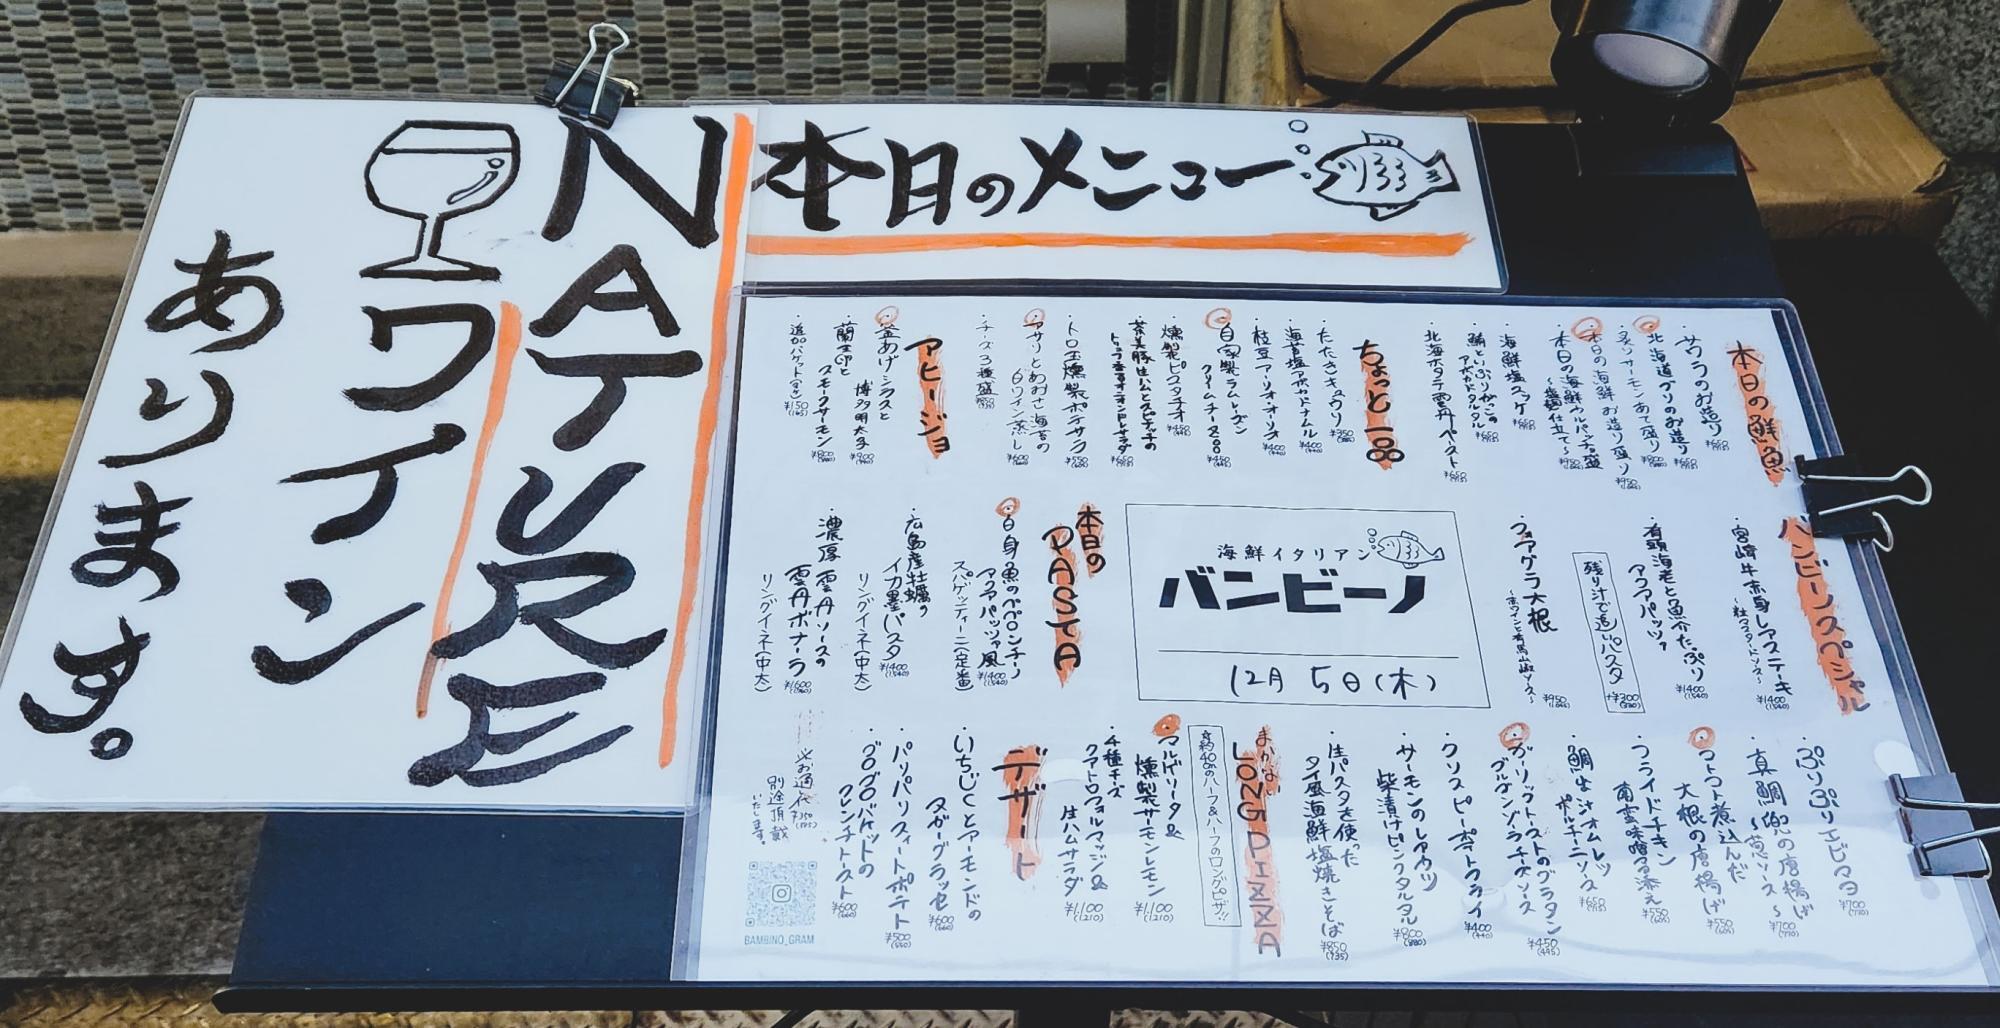 本日のメニュー
NATURE
ワイン
あります。
本日の鮮魚
・サワラのお造り ¥650
・北海道ブリのお造り ¥650
・炙りサーモンあて盛り ¥800
・本日の海鮮お造り盛り ¥950
・本日の海鮮カルパッチョ盛
〜塩麹仕立て〜 ¥950
・海鮮塩ユッケ ¥650
・鯛といぶりがっこの
アボカドタルタル ¥650
・北海ホタテ雲丹ペースト ¥650
ちょっと一品
・たたきキュウリ ¥350
・海苔塩アボカドナムル ¥400
・枝豆アーリオ・オーリオ ¥400
・自家製ラムレーズン
クリームチーズ ¥450
・燻製ピスタチオ ¥450
・茶美豚生ハムとスピナッチの
トリュフ香るオニオンドレサラダ ¥650
・トロ玉燻製ポテサラ ¥550
・アサリとあおさ海苔の
白ワイン蒸し ¥600
・チーズ3種盛
アヒージョ
・釜あげシラスと
博多明太子 ¥900
・蘭王卵と
スモークサーモン ¥800
・追加バケット ¥150 (165)
海鮮イタリアン
バンビーノ
12月 5日(木)
バンビーノスペシャル
・宮崎牛赤身レアステーキ
¥1400 (1540)
・有頭海老と魚介たっぷり
アクアパッツァ ¥1400 (1540)
残り汁で追いパスタ +¥300
・フォアグラ大根 ¥950
本日の
PASTA
・白身魚のペペロンチーノ
アクアパッツァ風 ¥1400 (1540)
スパゲッティーニ(定番)
・広島産牡蠣の
イカ墨パスタ ¥1400 (1540)
リングイネ(中太)
・濃厚雲丹ソースの
雲丹ボナーラ ¥1600
リングイネ(中太)
・ぷりぷりエビマヨ ¥700 (770)
・真鯛兜の唐揚げ
〜葱ソース〜 ¥700 (770)
・コトコト煮込んだ
大根の唐揚げ ¥550 (605)
・フライドチキン
南蛮味噌添え ¥550 (605)
・鯛出汁オムレツ
ポルチーニソース ¥650
・ガーリックトーストのグラタン
ゴルゴンゾーラチーズソース ¥450 (495)
・クリスピーポテトフライ ¥400 (440)
・サーモンのレアカツ
柴漬けピンクタルタル ¥800 (880)
・生パスタを使った
タイ風海鮮塩焼きそば ¥850 (935)
まかない
LONG PIZZA
約40cmのハーフ&ハーフのロングピザ!!
・マルゲリータ&
燻製サーモンレモン ¥1,100 (1210)
・4種チーズ
クアトロフォルマッジ&
生ハムサラダ ¥1,100 (1210)
デザート
・いちじくとアーモンドの
ヌガーグラッセ ¥600 (660)
・パリパリスイートポテト ¥500 (550)
・ゴロゴロバケットの
フレンチトースト ¥600 (660)
※お通し代¥350
別途頂戴
いたします。
BAMBINO_GRAM